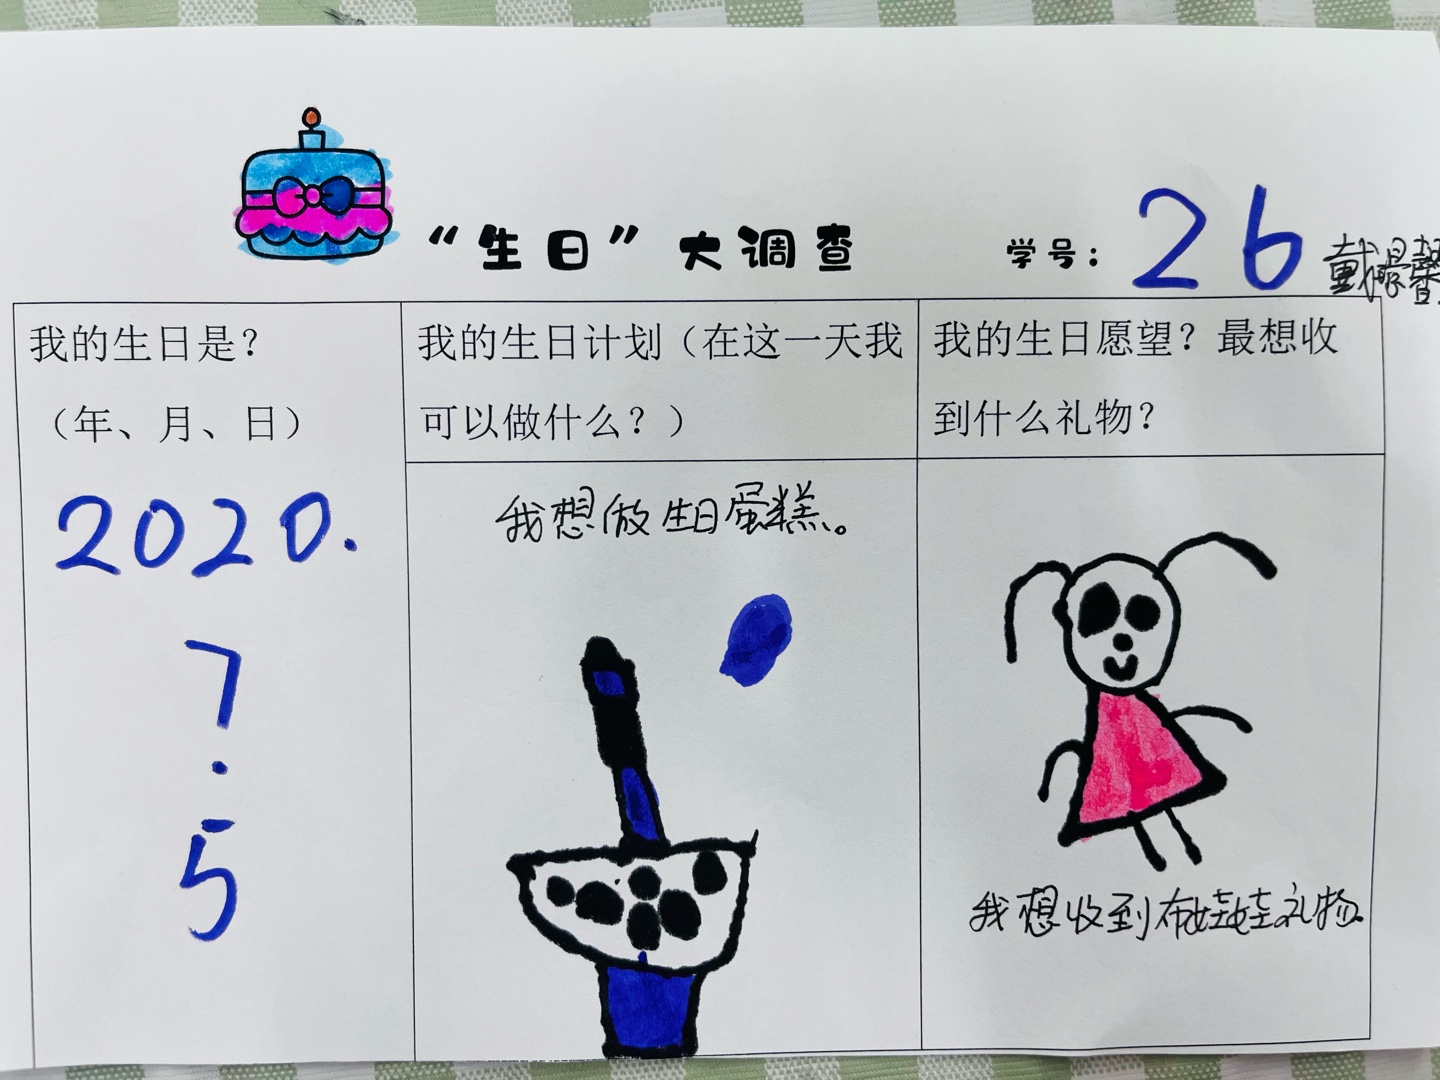 “生日”大调查
学号：26
我的生日是？
（年、月、日）
2020.
7
.
5
我的生日计划（在这一天我
可以做什么？）
我想做生日蛋糕。
我的生日愿望？最想收
到什么礼物？
我想收到布娃娃礼物。